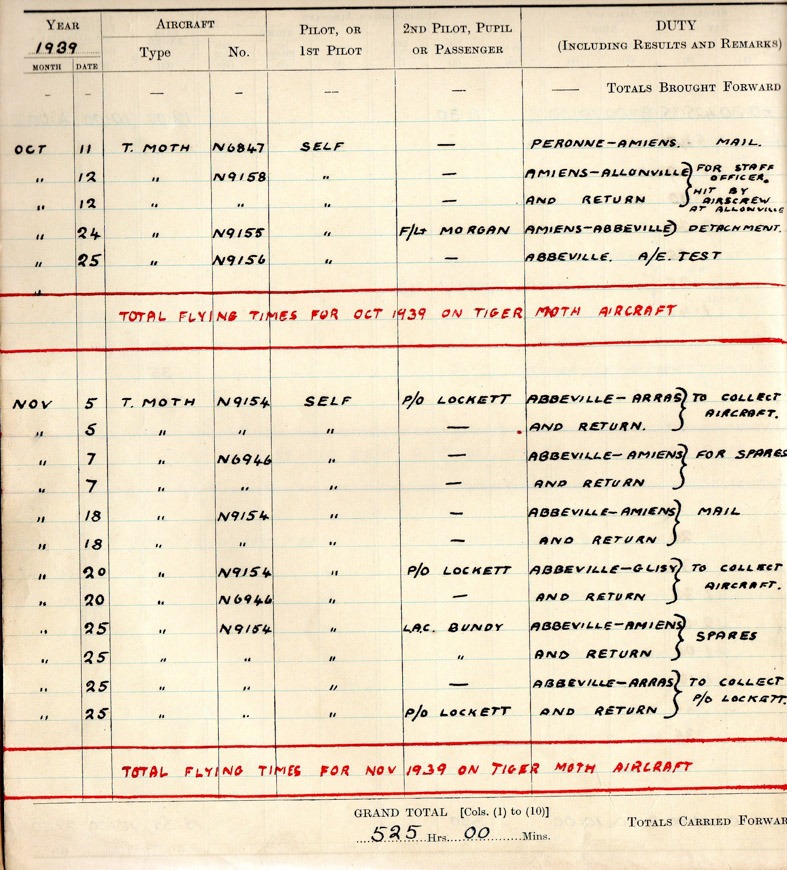 YEAR AIRCRAFT PILOT, OR 2ND PILOT, PUPIL DUTY
1939 Type No. 1ST PILOT OR PASSENGER (INCLUDING RESULTS AND REMARKS)
MONTH DATE
— — — — — — — TOTALS BROUGHT FORWARD
OCT 11 T. MOTH N6847 SELF — PERONNE-AMIENS. MAIL.
" 12 " N9158 " — AMIENS-ALLONVILLE } FOR STAFF OFFICER.
" 12 " " " — AND RETURN HIT BY AIRSCREW AT ALLONVILLE
" 24 " N9155 " F/Lt MORGAN AMIENS-ABBEVILLE) DETACHMENT.
" 25 " N9156 " — ABBEVILLE. A/E. TEST
"
TOTAL FLYING TIMES FOR OCT 1939 ON TIGER MOTH AIRCRAFT
NOV 5 T. MOTH N9154 SELF P/O LOCKETT ABBEVILLE-ARRAS } TO COLLECT
" 5 " " " — AND RETURN. AIRCRAFT.
" 7 " N6946 " — ABBEVILLE-AMIENS } FOR SPARES
" 7 " " " — AND RETURN
" 18 " N9154 " — ABBEVILLE-AMIENS } MAIL
" 18 " " " — AND RETURN
" 20 " N9154 " P/O LOCKETT ABBEVILLE-GLISY } TO COLLECT
" 20 " N6946 " — AND RETURN AIRCRAFT.
" 25 " N9154 " LAC. BUNDY ABBEVILLE-AMIENS } SPARES
" 25 " " " " AND RETURN
" 25 " " " — ABBEVILLE-ARRAS } TO COLLECT
" 25 " " " P/O LOCKETT AND RETURN P/O LOCKETT.
TOTAL FLYING TIMES FOR NOV 1939 ON TIGER MOTH AIRCRAFT
GRAND TOTAL [Cols. (1) to (10)]
525 Hrs. 00 Mins. TOTALS CARRIED FORWAR